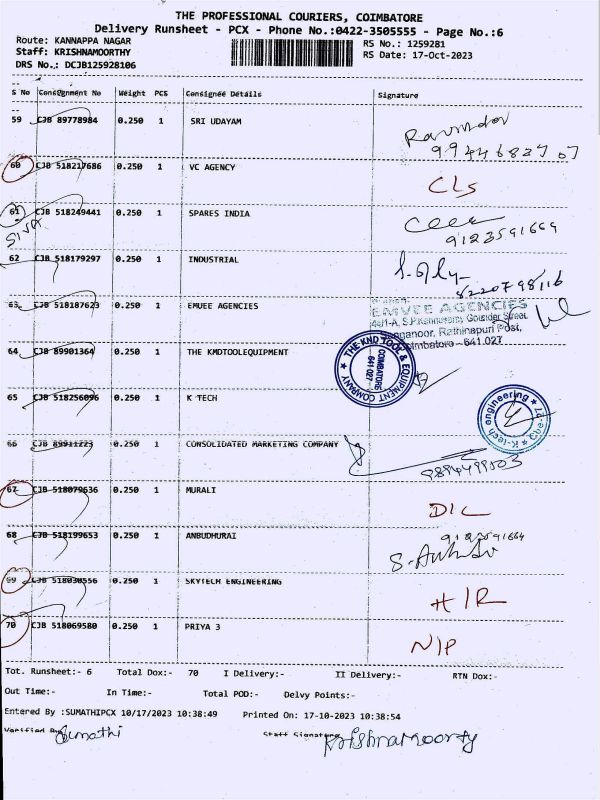 THE PROFESSIONAL COURIERS, COIMBATORE
Delivery Runsheet - PCX - Phone No.:0422-3505555 - Page No.:6
Route: KANNAPPA NAGAR
RS No.: 1259281
Staff: KRISHNAMOORTHY
RS Date: 17-Oct-2023
DRS No.: DCJB125928106
S No Consignment No Weight PCS Consignee Details Signature
59 CJB 89778984 0.250 1 SRI UDAYAM
60 CJB 518217686 0.250 1 VC AGENCY CLS
61 CJB 518249441 0.250 1 SPARES INDIA
9123591669
SIVA
62 CJB 518179297 0.250 1 INDUSTRIAL
8220798116
63 CJB 518187623 0.250 1 EMUEE AGENCIES
EMVEE AGENCIES
Rathinapuri Post,
Coimbatore - 641.027
64 CJB 89901364 0.250 1 THE KMDTOOLEQUIPMENT
THE KMD TOOL & EQUIPMENT COMPANY
COIMBATORE
641.027
65 CJB 518256096 0.250 1 K TECH
K-tech engineering
66 CJB 89911223 0.250 1 CONSOLIDATED MARKETING COMPANY
67 CJB 518079636 0.250 1 MURALI DIL
68 CJB 518199653 0.250 1 ANBUDHURAI
69 CJB 518030556 0.250 1 SKYTECH ENGINEERING H/R
70 CJB 518069580 0.250 1 PRIYA 3 N/P
Tot. Runsheet:- 6 Total Dox:- 70 I Delivery:- II Delivery:- RTN Dox:-
Out Time:- In Time:- Total POD:- Delvy Points:-
Entered By :SUMATHIPCX 10/17/2023 10:38:49 Printed On: 17-10-2023 10:38:54
Verified By Sumathi Staff Signature Krishnamoorty